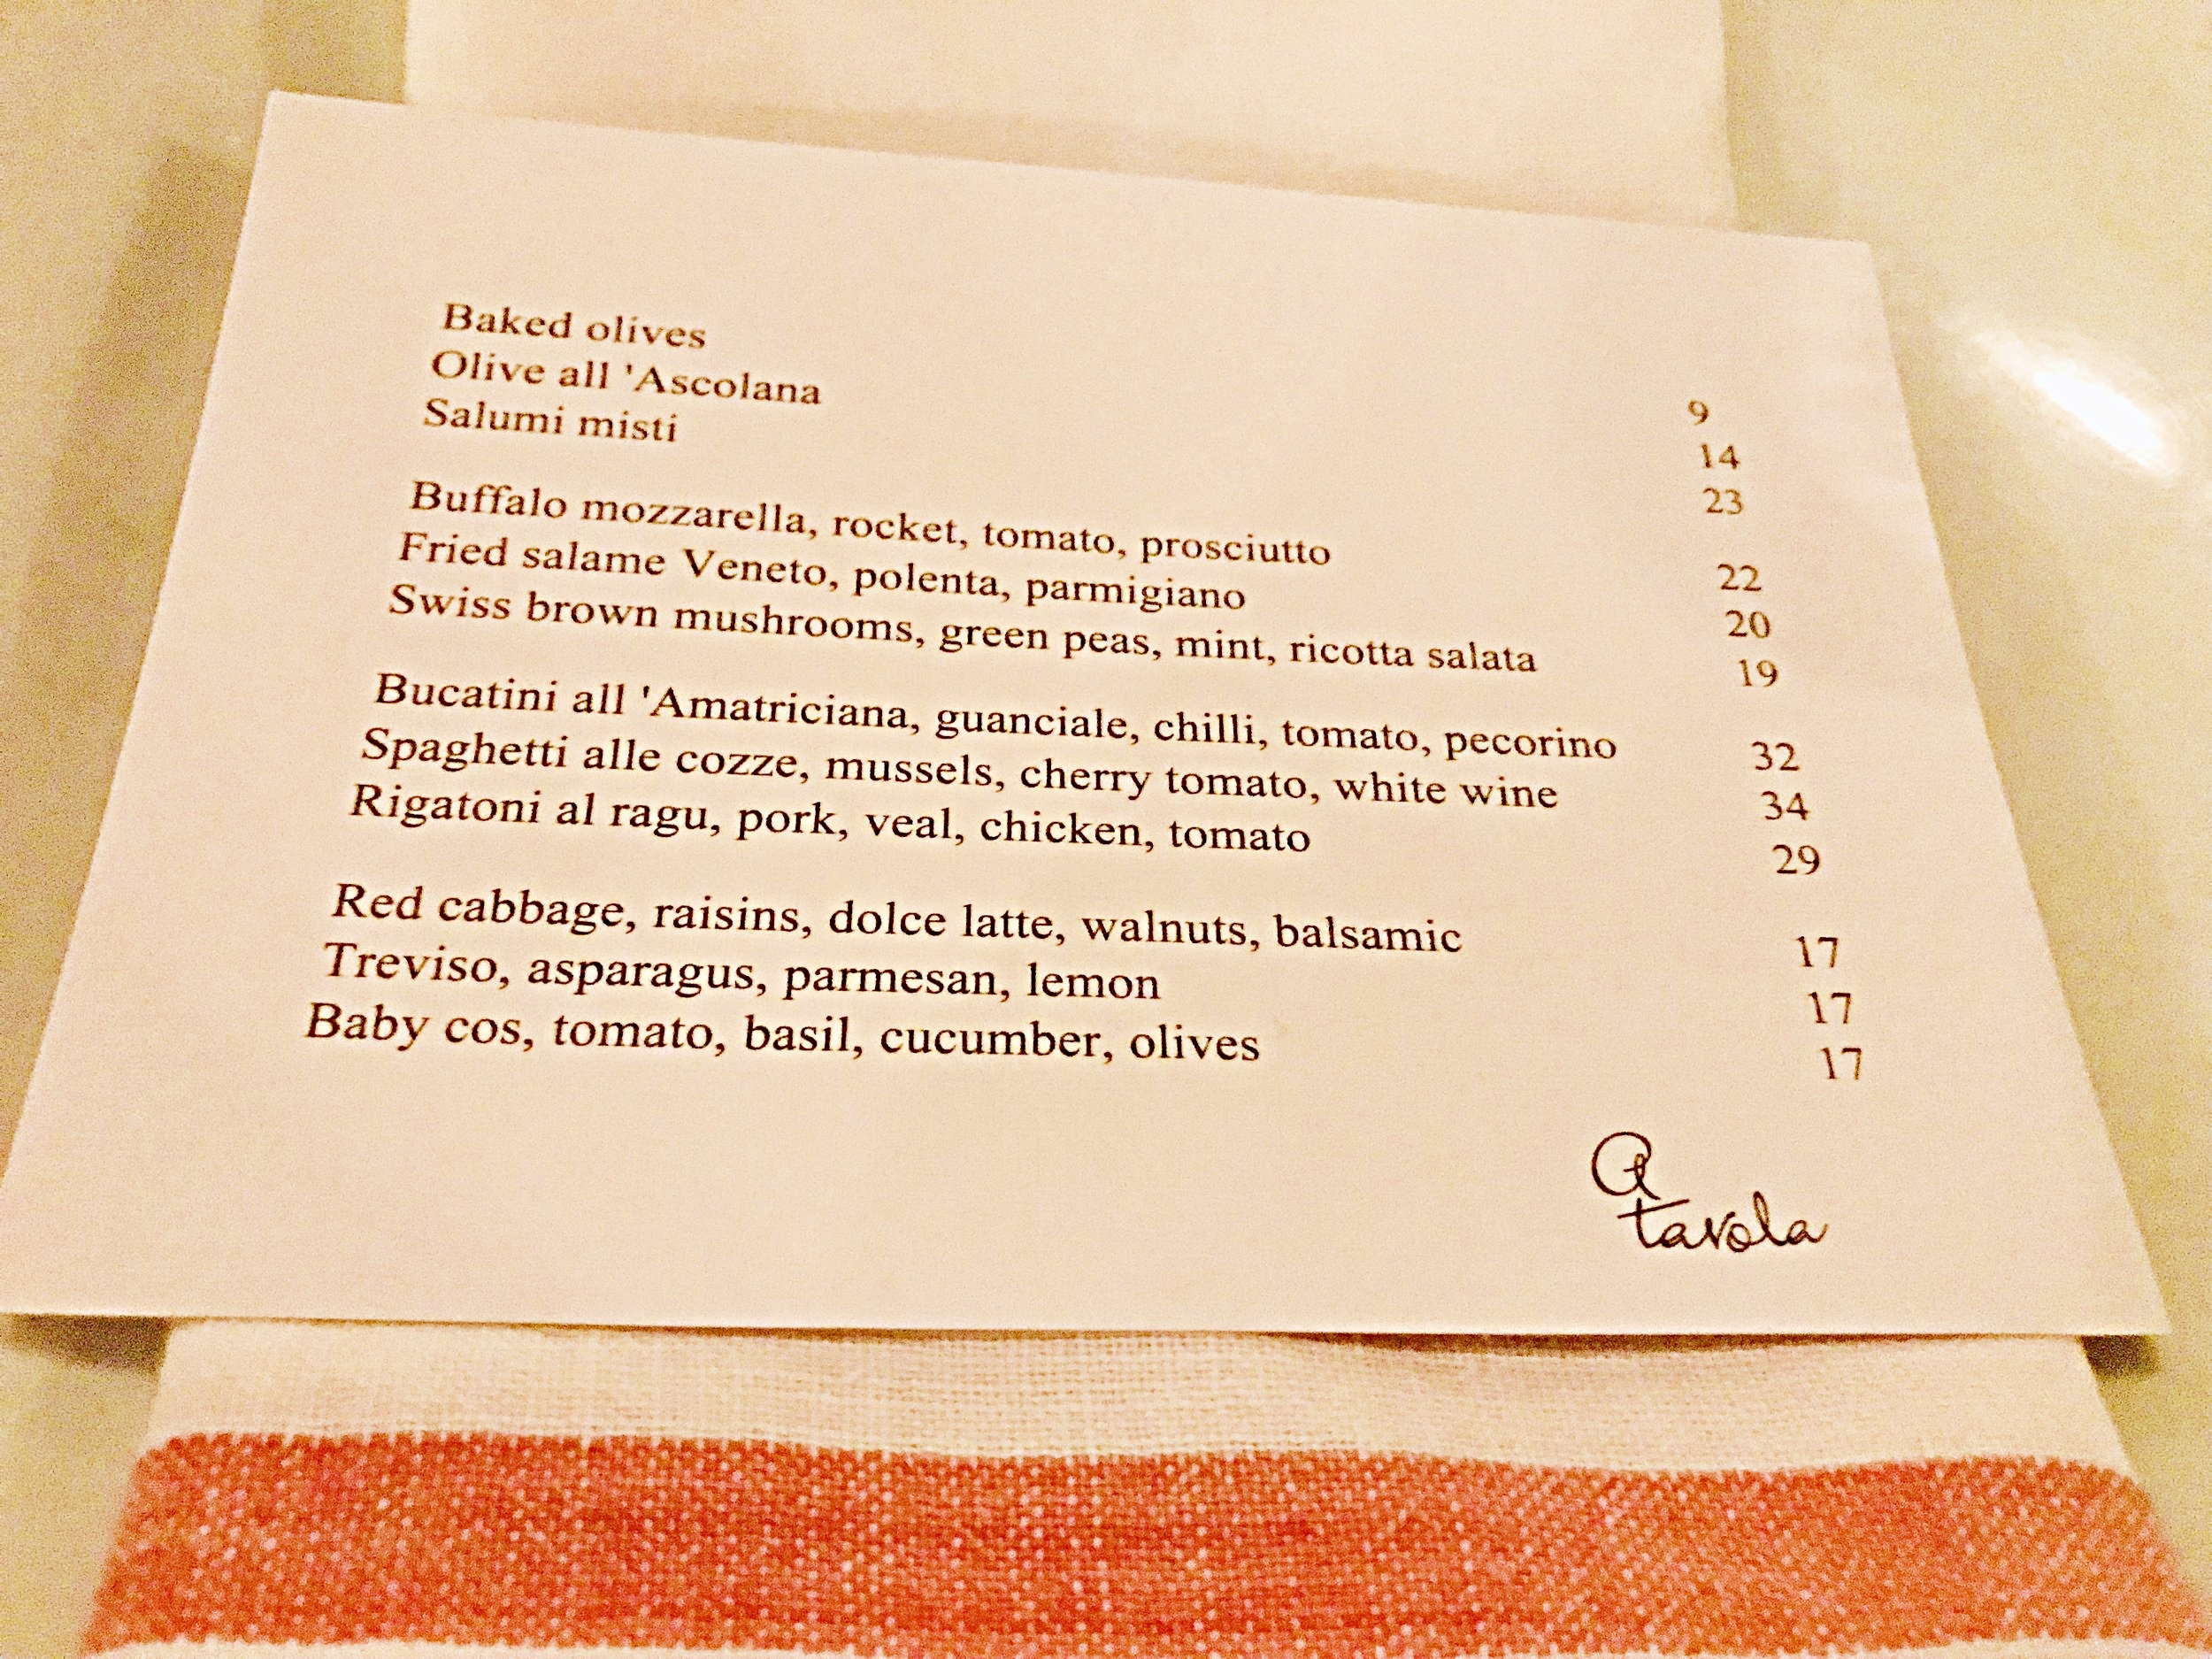 Baked olives 9
Olive all 'Ascolana 14
Salumi misti 23
Buffalo mozzarella, rocket, tomato, prosciutto 22
Fried salame Veneto, polenta, parmigiano 20
Swiss brown mushrooms, green peas, mint, ricotta salata 19
Bucatini all 'Amatriciana, guanciale, chilli, tomato, pecorino 32
Spaghetti alle cozze, mussels, cherry tomato, white wine 34
Rigatoni al ragu, pork, veal, chicken, tomato 29
Red cabbage, raisins, dolce latte, walnuts, balsamic 17
Treviso, asparagus, parmesan, lemon 17
Baby cos, tomato, basil, cucumber, olives 17
A
tavola